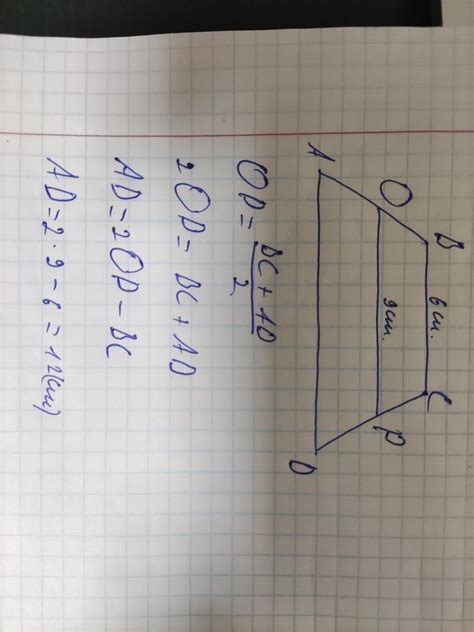 B 6 см. C
O 9 см. P
A D
OP = BC + AD
2
2OP = BC + AD
AD = 2OP - BC
AD = 2 · 9 - 6 = 12 (см)